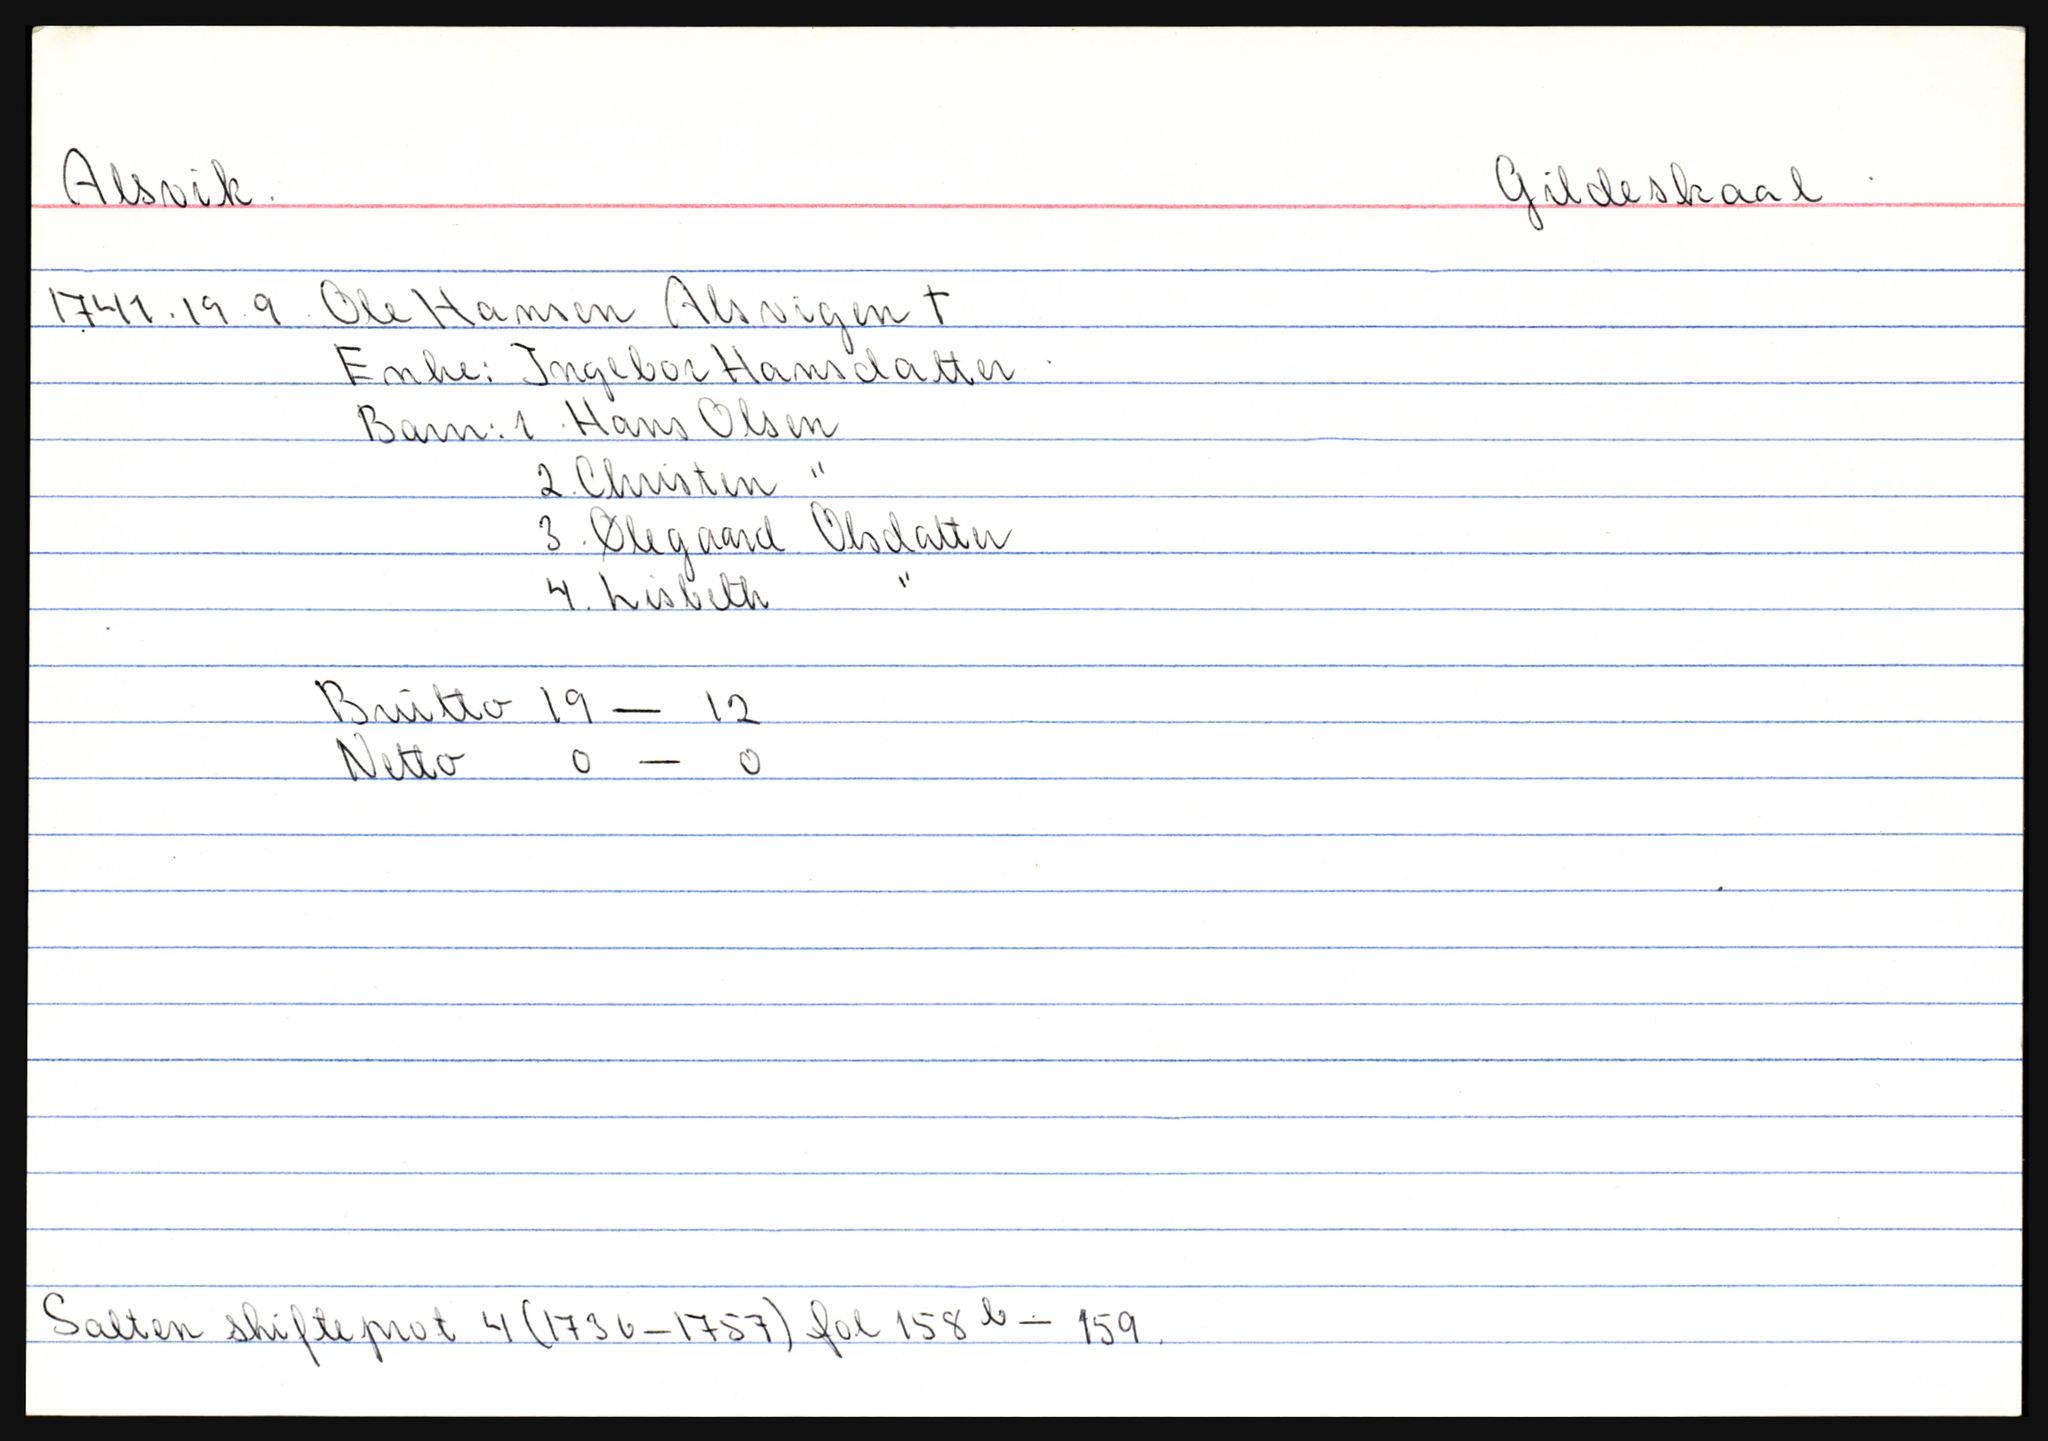 Alsvik. Gildeskaal
1741.19.9. Ole Hansen Alsvigen †
Enke: Ingebor Hansdatter.
Barn: 1. Hans Olsen
2. Christen "
3. Ølegaard Olsdatter
4. Lisbeth "
Brutto 19 — 12
Netto 0 — 0
Salten skifteprot 4 (1736–1757) fol 158 b – 159.